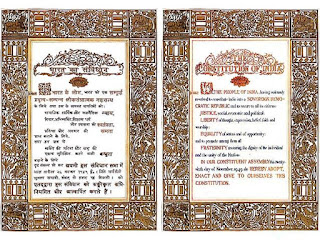 भारत का संविधान
भारत के लोग, भारत को एक सम्पूर्ण
प्रभुत्व-सम्पन्न लोकतंत्रात्मक गणराज्य
बनाने के लिए, तथा उसके समस्त नागरिकों को:
सामाजिक, आर्थिक और राजनैतिक न्याय,
विचार, अभिव्यक्ति, विश्वास, धर्म
और उपासना की स्वतंत्रता,
प्रतिष्ठा और अवसर की समता
प्राप्त कराने के लिए,
तथा उन सब में
व्यक्ति की गरिमा और राष्ट्र की
एकता सुनिश्चित करने वाली बन्धुता
बढ़ाने के लिए
दृढ़संकल्प होकर अपनी इस संविधान सभा में
आज तारीख 26 नवम्बर, 1949 ई०
एतद्द्वारा इस संविधान को अङ्गीकृत, अधि-
नियमित और आत्मार्पित करते हैं।
CONSTITUTION OF INDIA
WE, THE PEOPLE OF INDIA, having solemnly
resolved to constitute India into a SOVEREIGN DEMO-
CRATIC REPUBLIC and to secure to all its citizens:
JUSTICE, social, economic and political;
LIBERTY of thought, expression, belief, faith and
worship;
EQUALITY of status and of opportunity;
and to promote among them all
FRATERNITY assuring the dignity of the individual
and the unity of the Nation;
IN OUR CONSTITUENT ASSEMBLY this twenty-
sixth day of November 1949, do HEREBY ADOPT,
ENACT AND GIVE TO OURSELVES THIS
CONSTITUTION.